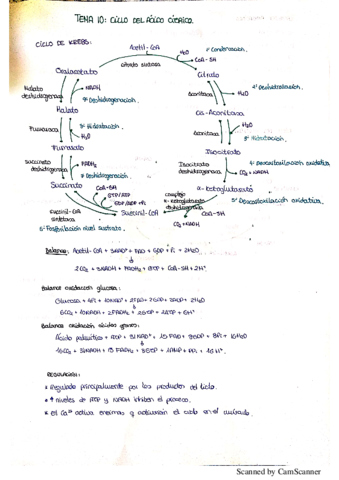 TEMA 10: CICLO DEL ÁCIDO CÍTRICO.
CICLO DE KREBS:
Acetil-CoA
H2O
CoA-SH
1ª Condensación.
Citrato sintasa
Oxalacetato
Citrato
Malato deshidrogenasa
NADH
8ª Deshidrogenación.
Aconitasa
H2O
2ª Deshidratación.
Malato
cis-Aconitato
Fumarasa
H2O
7ª Hidratación.
Aconitasa
H2O
3ª Hidratación.
Fumarato
Isocitrato
Succinato deshidrogenasa
FADH2
6ª Deshidrogenación.
Isocitrato deshidrogenasa
4ª Descarboxilación oxidativa
CO2 + NADH
Succinato
CoA-SH
GTP/ATP
GDP/ADP + Pi
CoA-SH
complejo α-ketoglutarato deshidrogenasa
α-ketoglutarato
Succinil-CoA sintetasa
Succinil-CoA
CO2 + NADH
5ª Descarboxilación oxidativa.
Fosforilación nivel sustrato.
Balance: Acetil-CoA + 3NAD+ + FAD + GDP + Pi + 2H2O
2CO2 + 3NADH + FADH2 + GTP + CoA-SH + 2H+
Balance oxidación glucosa:
Glucosa + 4Pi + 10NAD+ + 2FAD + 2GDP + 2ADP + 2H2O
6CO2 + 10NADH + 2FADH2 + 2GTP + 2ATP + 6H+
Balance oxidación ácidos grasos:
Ácido palmítico + ATP + 31NAD+ + 15FAD + 8GDP + 8Pi + 16H2O
16CO2 + 31NADH + 15FADH2 + 8GTP + AMP + PPi + 16H+
REGULACIÓN:
Regulado principalmente por los productos del ciclo.
↑ niveles de ATP y NADH inhiben el proceso.
el Ca2+ activa enzimas y activarán el ciclo en el músculo.
Scanned by CamScanner